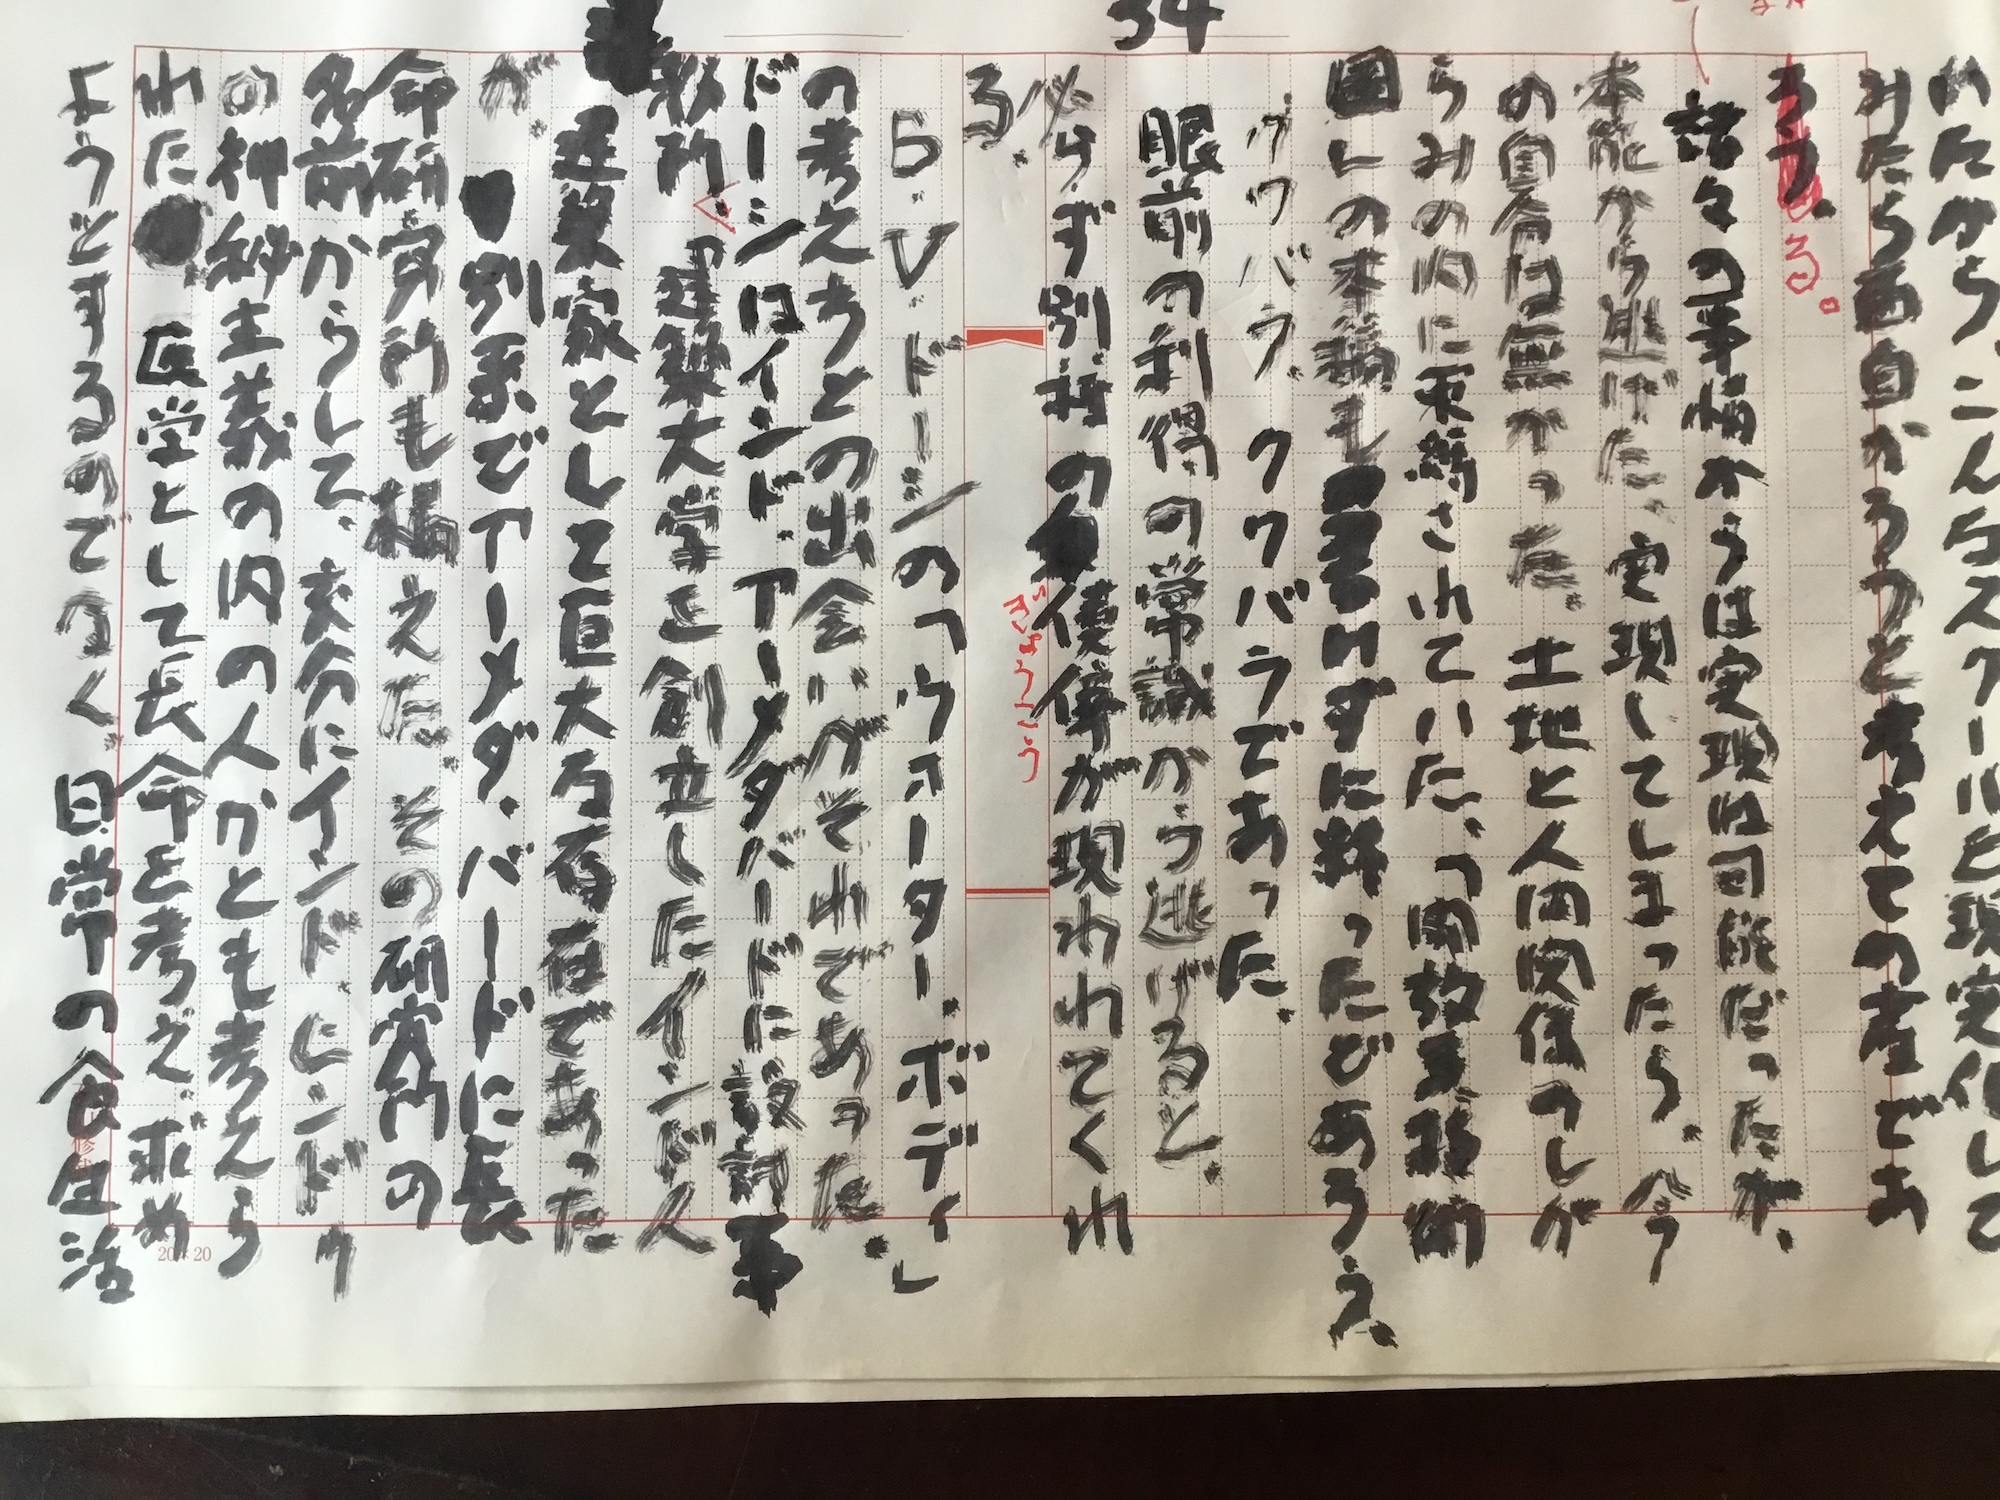 34
いたから、こんなスクールを現実化して
みたら面白かろうと考えての考であ
る。
諸々の事情からは実現は可能だったが、
本能から逃げた。実現してしまったら。今
の自分は無かった。土地と人間関係のしが
らみの内に束縛されていた。「開放系技術
園しの本稿も書けずに終ったであろう。
クワバラ、クワバラであった。
眼前の利得の常識から逃げると、
必らず別種の僥倖が現われてくれ
ぎょうこう
る。
B・V・ドーシの「ウォーター・ボディ」
の考え方との出会いがそれであった。
ドーシはインド・アーメダバードに設計事
務所、建築大学を創立したインド人
建築家として巨大な存在であった
が、
別系でアーメダバードに長
命研究所も構えた。その研究所の
名前からして、充分にインド、ヒンドゥ
の神秘主義の内の人かとも考えら
れた 医学として長命を考え、求め
ようとするのでなく、日常の食生活
20×20